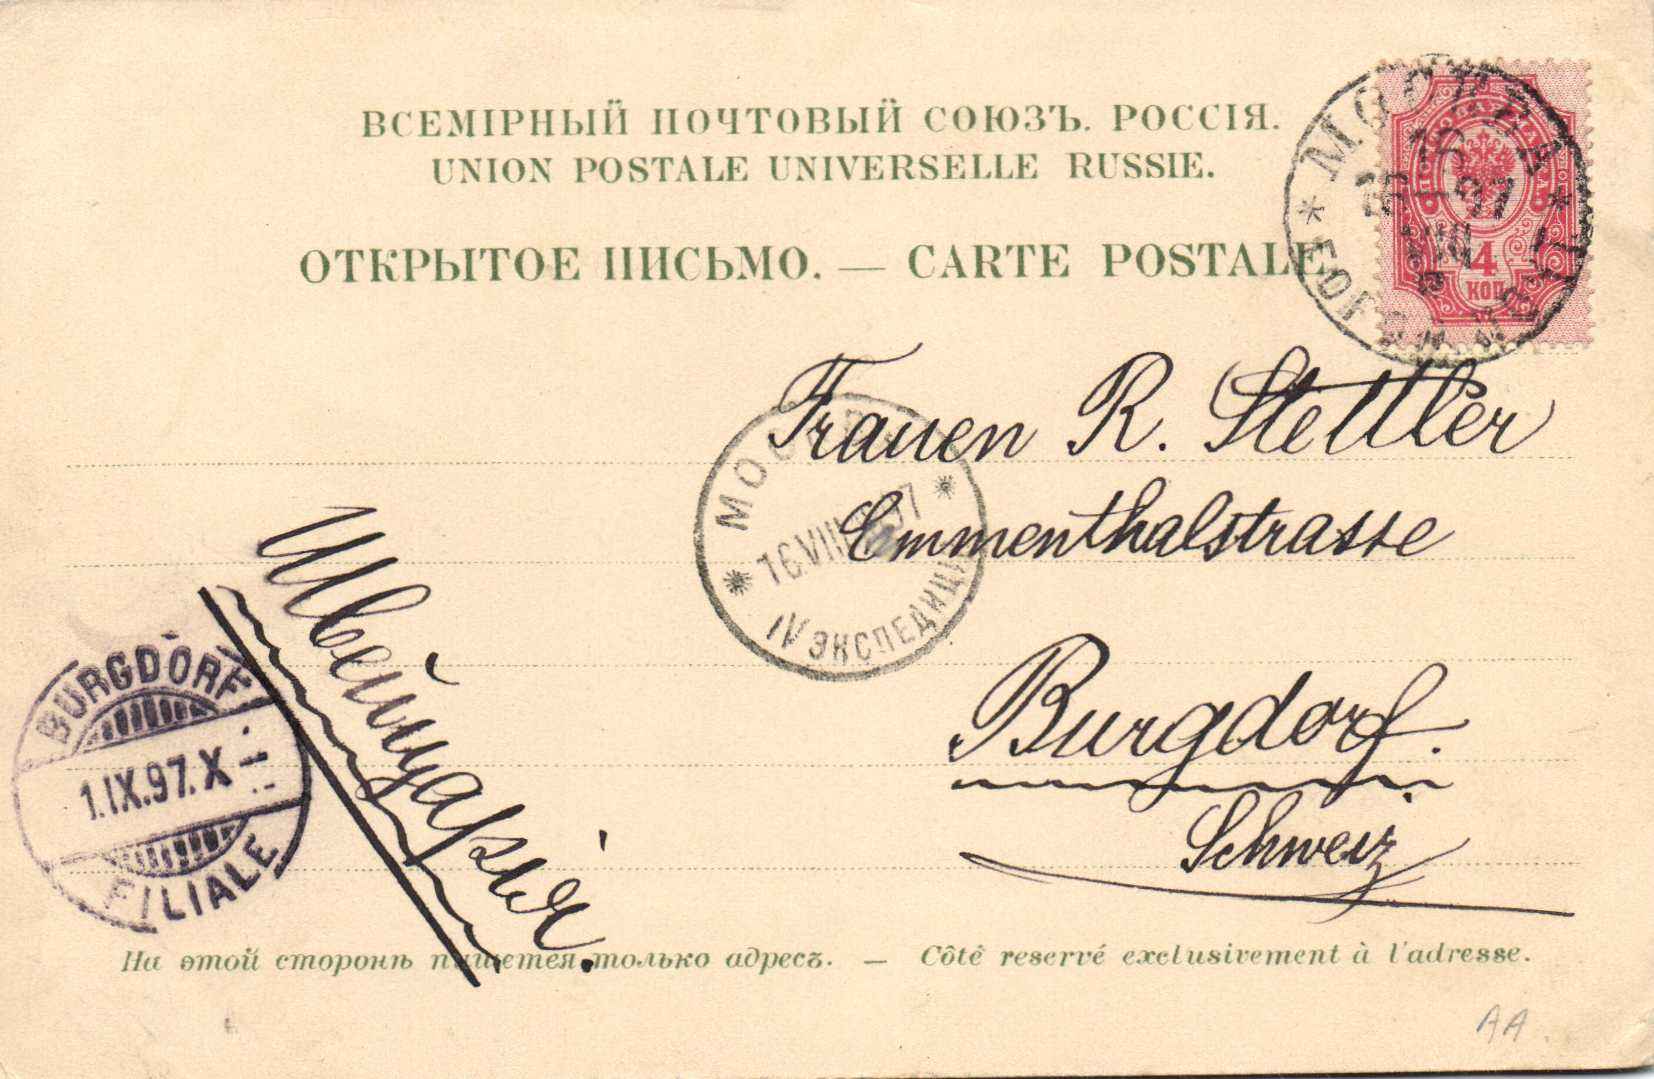 ВСЕМІРНЫЙ ПОЧТОВЫЙ СОЮЗЪ. РОССІЯ.
UNION POSTALE UNIVERSELLE RUSSIE.
ОТКРЫТОЕ ПИСЬМО. — CARTE POSTALE
МОСКВА
16
97
VIII
4
КОП
Frauen R. Stettler
МОСКВА
16 VIII 97
IV ЭКСПЕДИЦІЯ
Emmenthalstrasse
Burgdorf.
Schweiz
Швейцарія.
BURGDORF
1.IX.97.X
FILIALE
На этой сторонѣ пишется только адресъ. — Côté reservé exclusivement à l'adresse.
AA